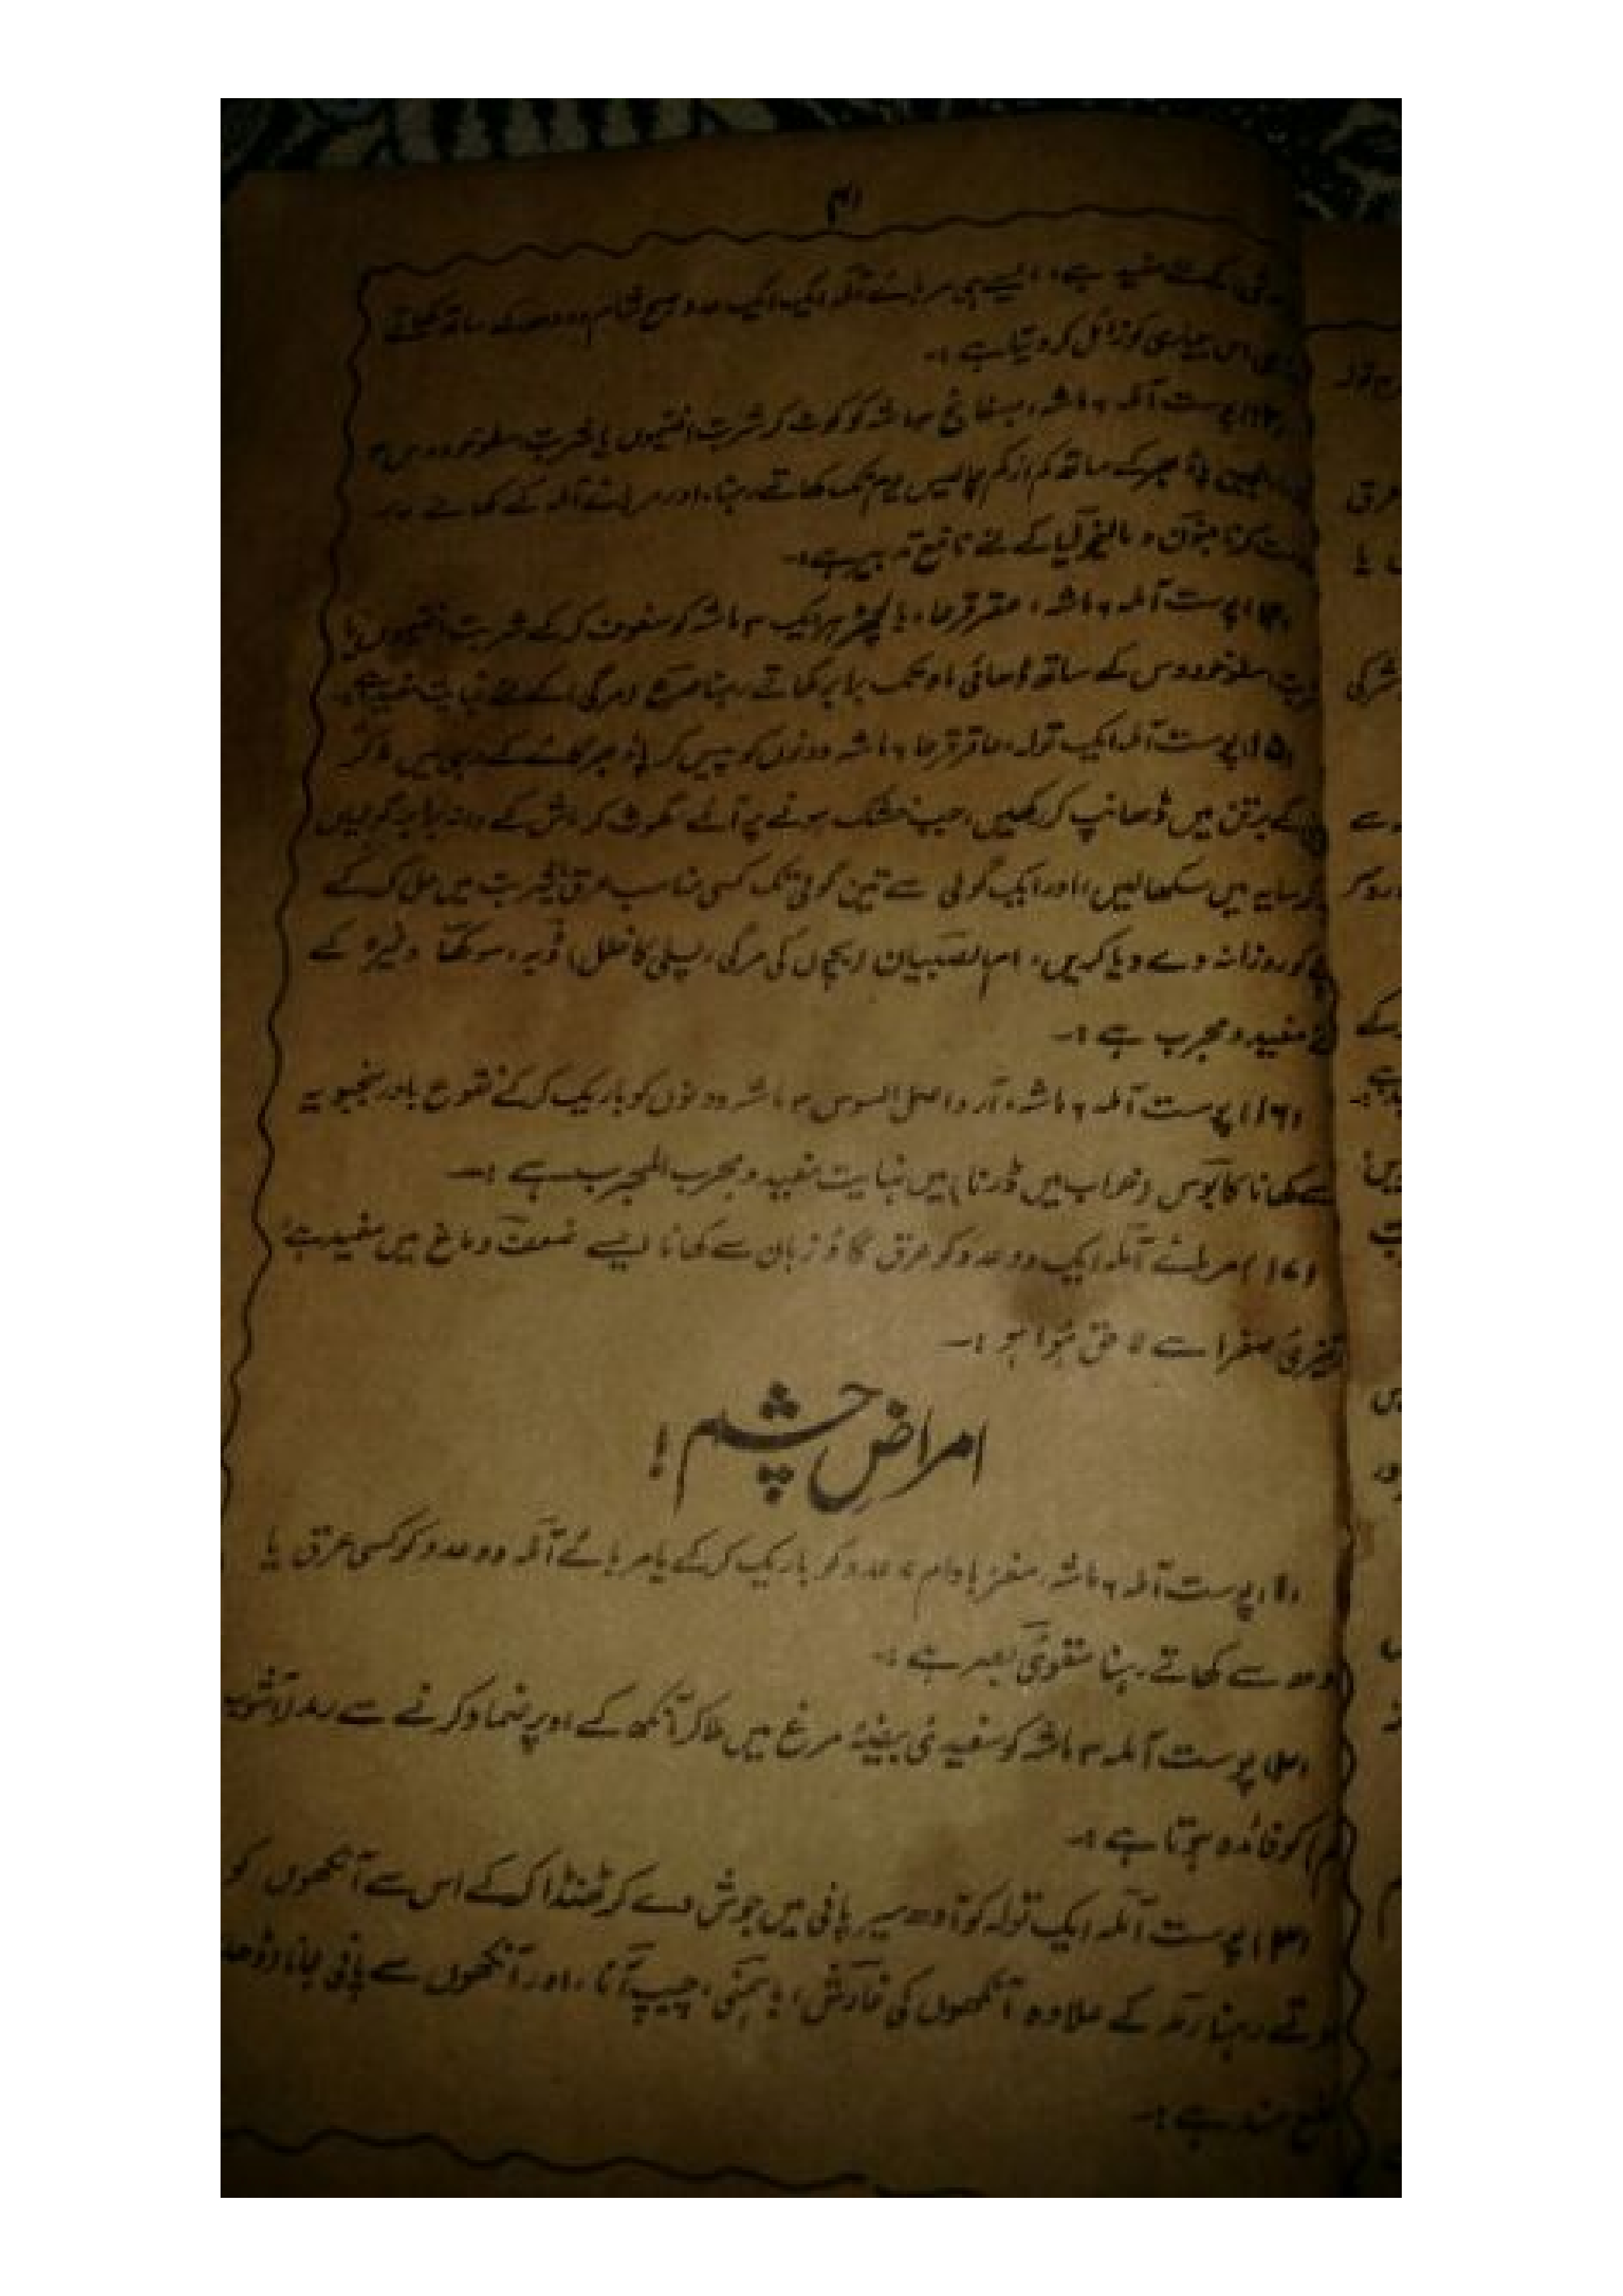 ۴۱
مفید ہے، ایسے ہی مربائے آملہ ایک ایک عدد صبح شام دودھ کے ساتھ کھاتے
اس بیماری کو زائل کر دیتا ہے :۔
پوست آملہ ۶ ماشہ، بسفائج ۳ ماشہ کو کوٹ کر شربت افتیموں یا شربت اسطوخودوس
پاؤ بھر کے ساتھ کم از کم چالیس یوم تک کھاتے رہنا، اور مربائے آملہ کے کھانے
کرنا جنون و مالیخولیا کے لئے نافع تدبیر ہے :۔
پوست آملہ ۶ ماشہ، عقرقرحا، بالچھڑ ہر ایک ۳ ماشہ کو سفوف کر کے شربت افتیموں یا
اسطوخودوس کے ساتھ ڈھائی ماہ تک برابر کھاتے رہنا صرع (مرگی) کے لئے نہایت مفید ہے :۔
(۱۵) پوست آملہ ایک تولہ، عاقرقرحا ۶ ماشہ دونوں کو پیس کر پاؤ بھر گائے کے دہی میں
کے برتن میں ڈھانپ کر رکھیں، جب خشک ہونے پر آئے گھوٹ کر ماش کے دانہ برابر گولیاں
سایہ میں سکھا لیں، اور ایک گولی سے تین گولی تک کسی مناسب عرق یا شربت میں حل کر کے
کو روزانہ دے دیا کریں، ام الصبیان (بچوں کی مرگی، پسلی کا خلل) ڈبہ، سوکھا وغیرہ کے
مفید و مجرب ہے :۔
(۱۶) پوست آملہ ۶ ماشہ، آرد اصل السوس ۳ ماشہ دونوں کو باریک کر کے نقوع بادرنجبویہ
سے کھانا کابوس (خواب میں ڈرنا) میں نہایت مفید و مجرب المجرب ہے :۔
(۱۷) مربائے آملہ ایک دو عدد کو عرق گاؤزبان سے کھانا ایسے ضعف دماغ میں مفید ہے
صفرا سے لاحق ہوا ہو :۔
امراضِ چشم !
(۱) پوست آملہ ۶ ماشہ، مغز بادام ۷ عدد کو باریک کر کے یا مربائے آملہ دو عدد کو کسی عرق یا
سے کھاتے رہنا مقوی بصر ہے :۔
(۲) پوست آملہ ۳ ماشہ کو سفیدی بیضۂ مرغ میں ملا کر آنکھ کے اوپر ضماد کرنے سے رمد (آشوب
کو فائدہ ہوتا ہے :۔
(۳) پوست آملہ ایک تولہ کو آدھ سیر پانی میں جوش دے کر ٹھنڈا کر کے اس سے آنکھوں کو
رہنا رمد کے علاوہ آنکھوں کی خارش، باہمنی، چیپ آنا، اور آنکھوں سے پانی جانا
مند ہے :۔